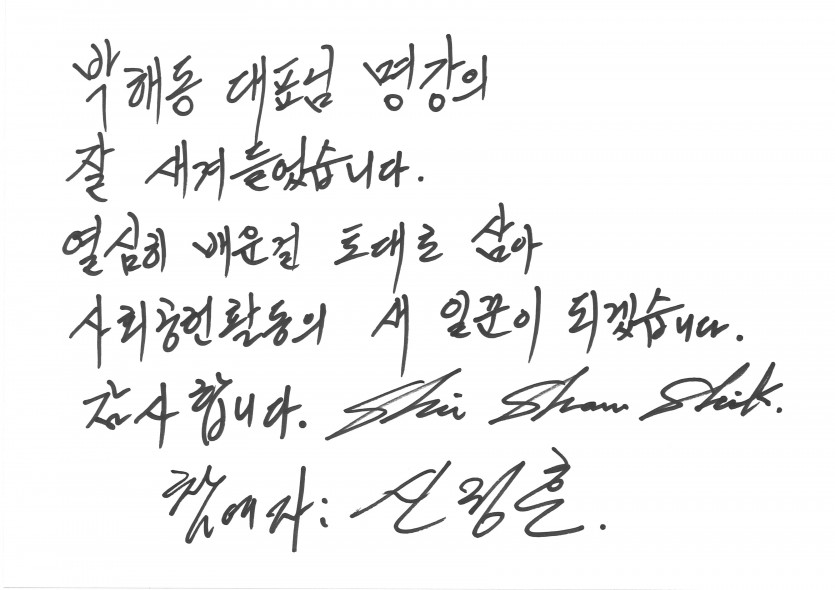 박해동 대표님 명강의
잘 새겨들었습니다.
열심히 배운걸 토대로 삼아
사회공헌활동의 새 일꾼이 되겠습니다.
감사합니다. Shin Sham Shik.
참여자: 신정훈.